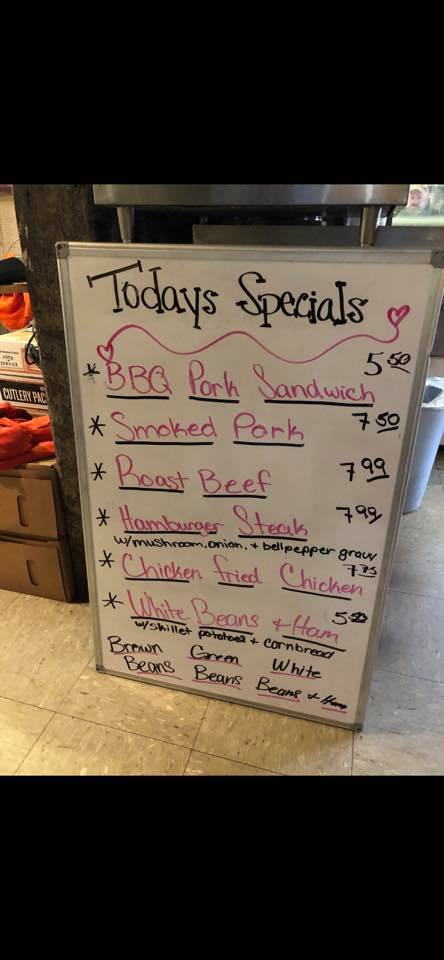 Todays Specials
* BBQ Pork Sandwich 5 50
* Smoked Pork 7 50
* Roast Beef 7 99
* Hamburger Steak 7 99
w/mushroom, onion, + bellpepper gravy
* Chicken fried Chicken 7 75
* White Beans + Ham 5 50
w/skillet potatoes + cornbread
Brown Green White
Beans Beans Beans + Ham
CUTLERY PAC
SERVICE